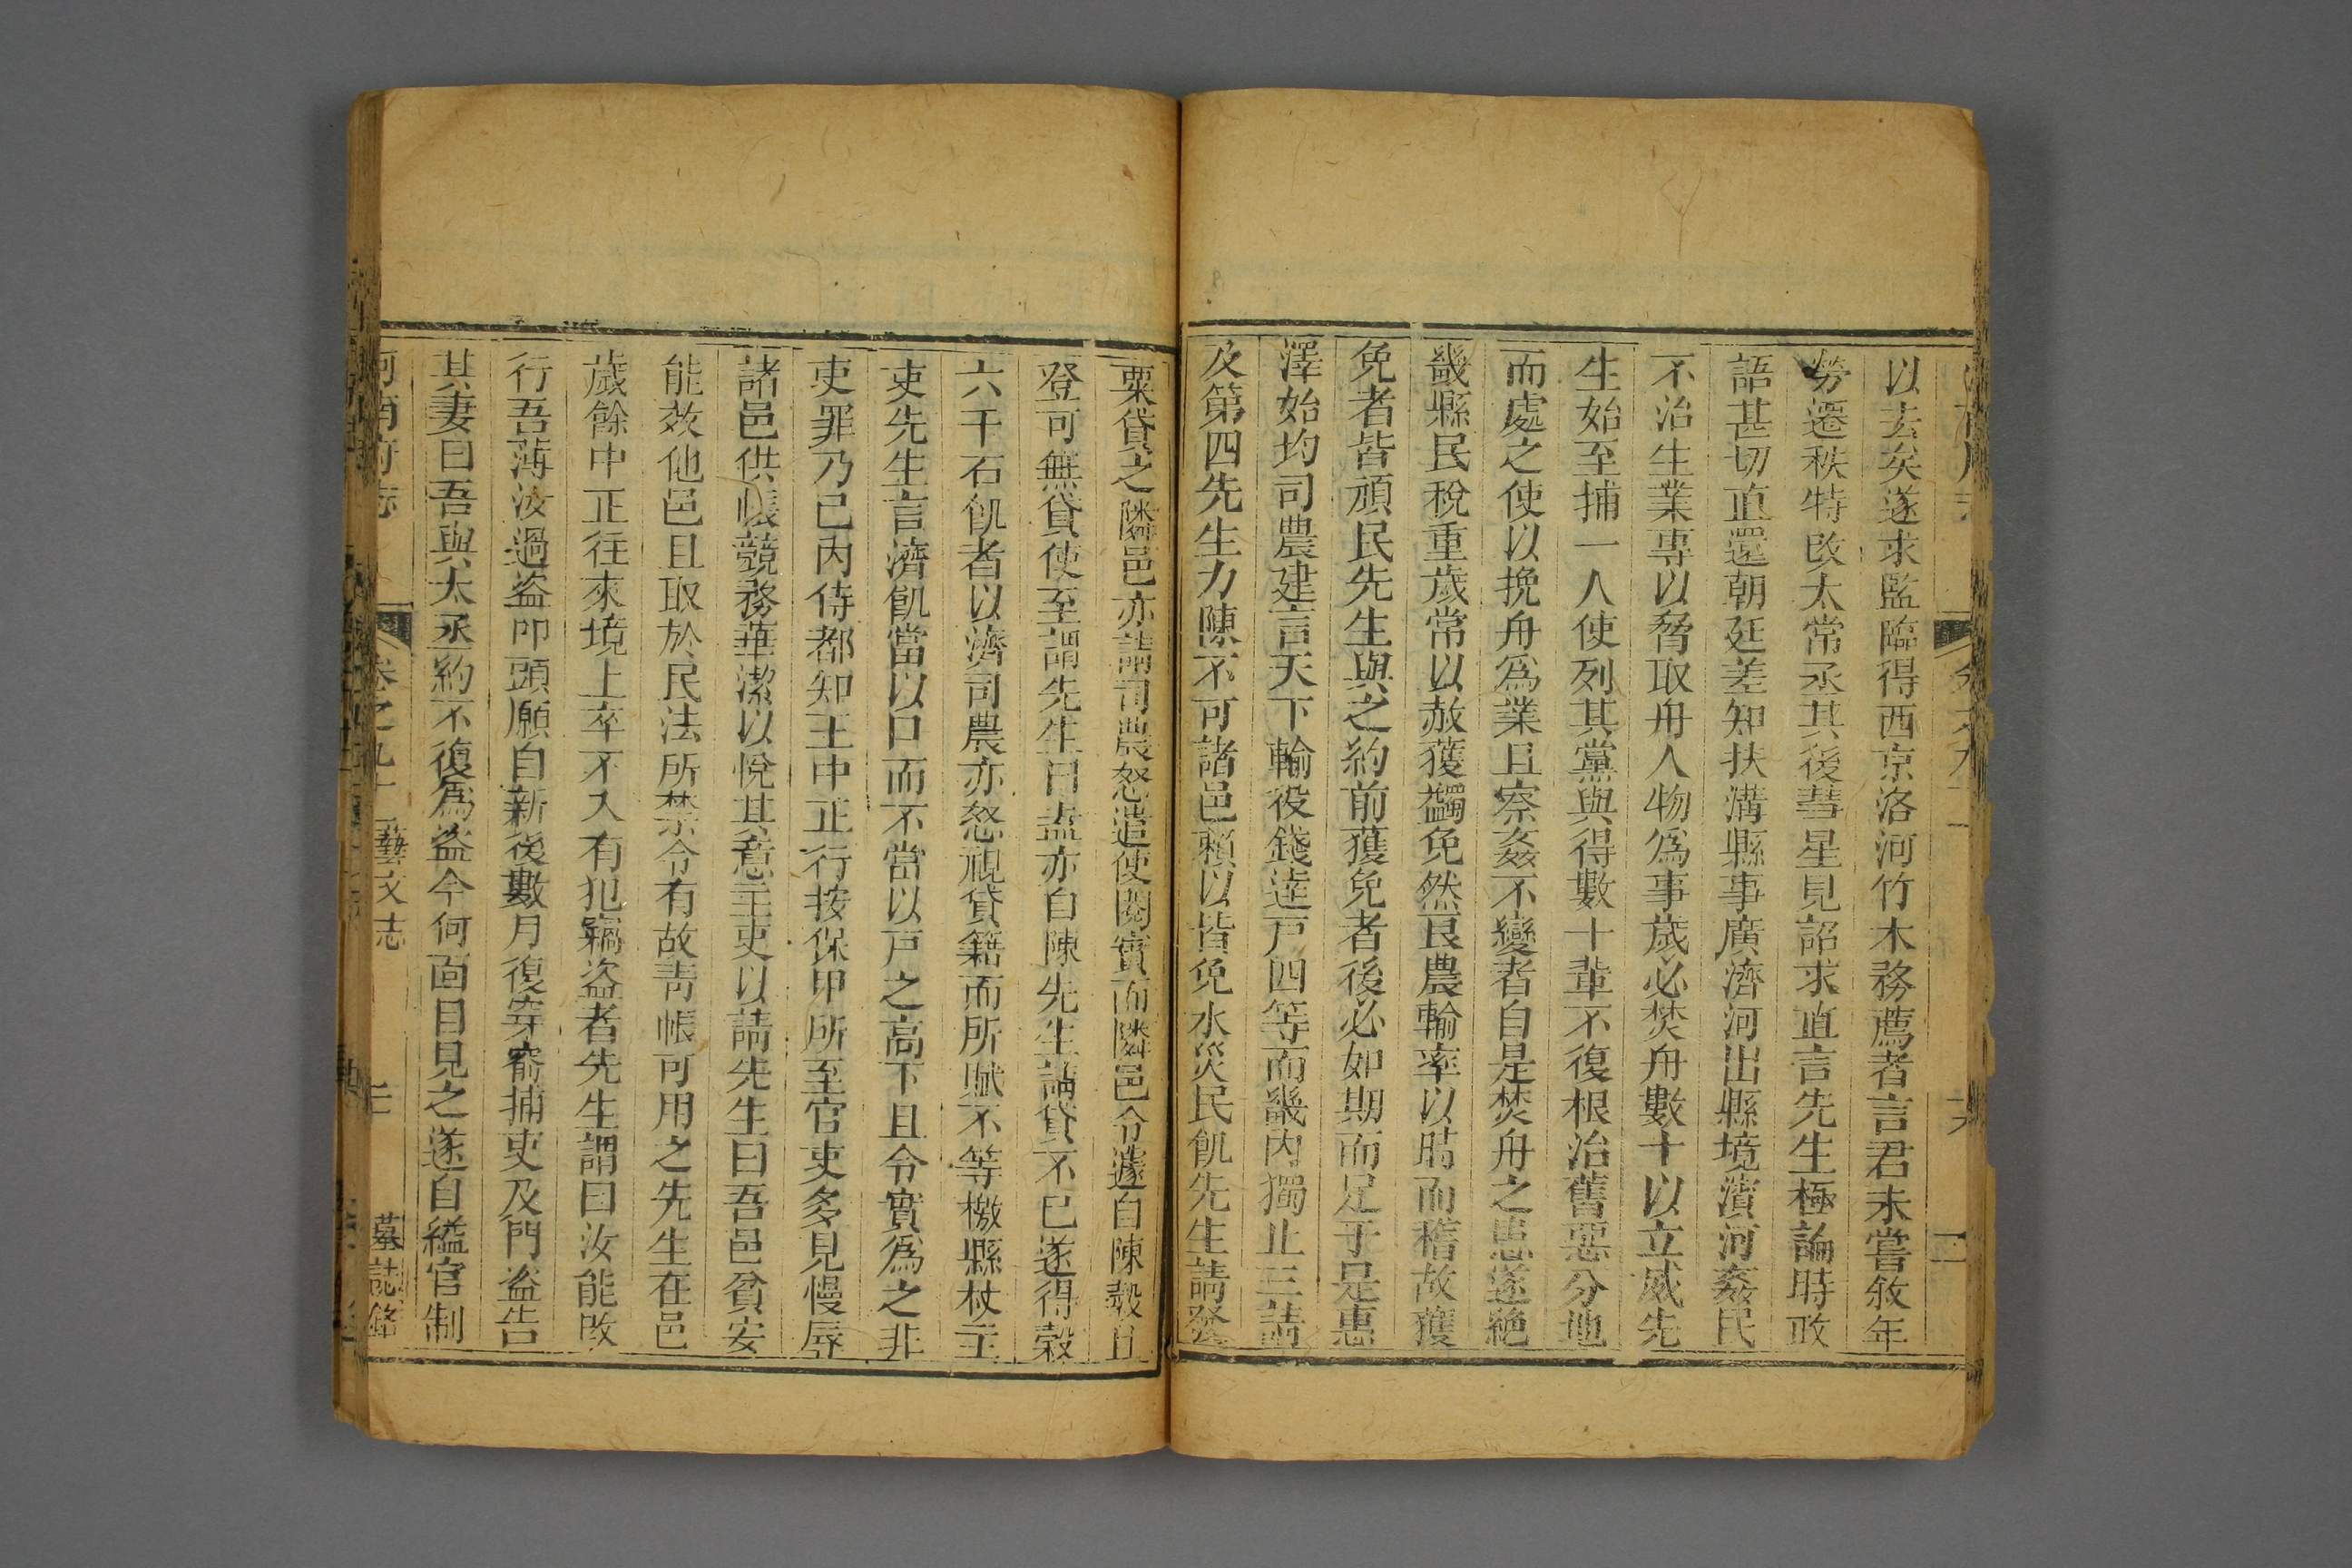 以去矣遂求監臨得西京洛河竹木務薦者言君未嘗敘年
勞遷秩特改太常丞其後彗星見詔求直言先生極論時政
語甚切直還朝廷差知扶溝縣事廣濟河出縣境濱河姦民
不治生業專以脅取舟人物爲事歲必焚舟數十以立威先
生始至捕一人使列其黨與得數十輩不復根治舊惡分地
而處之使以挽舟爲業且察姦不變者自是焚舟之患遂絶
畿縣民稅重歲常以赦獲蠲免然良農輸率以時而稽故獲
免者皆頑民先生與之約前獲免者後必如期而足于是惠
澤始均司農建言天下輸役錢逹戸四等而畿内獨止三請
及第四先生力陳不可諸邑賴以皆免水災民飢先生請發
粟貸之隣邑亦請司農怒遣使閱實而隣邑令遽自陳穀且
登可無貸使至謂先生曰盍亦自陳先生請貸不已遂得穀
六千石飢者以濟司農亦怒視貸籍而所賦不等檄縣杖主
吏先生言濟飢當以口而不當以戸之高下且令實爲之非
吏罪乃已内侍都知王中正行按保甲所至官吏多見慢辱
諸邑供帳競務華潔以悅其意主吏以請先生曰吾邑貧安
能效他邑且取於民法所禁令有故靑帳可用之先生在邑
歲餘中正往來境上卒不入有犯竊盜者先生謂曰汝能改
行吾薄汝過盜叩頭願自新後數月復穿窬捕吏及門盜告
其妻曰吾與太丞約不復爲盜今何面目見之遂自縊官制
河南府志
卷之九十 藝文志
墓誌銘